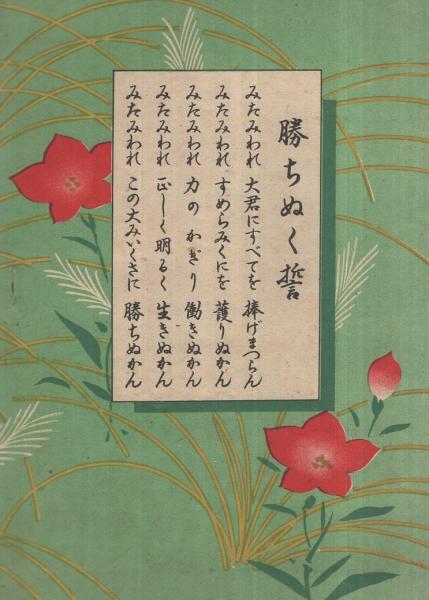 勝ちぬく誓
みたみわれ 大君にすべてを 捧げまつらん
みたみわれ すめらみくにを 護りぬかん
みたみわれ 力のかぎり 働きぬかん
みたみわれ 正しく明るく 生きぬかん
みたみわれ この大みいくさに 勝ちぬかん